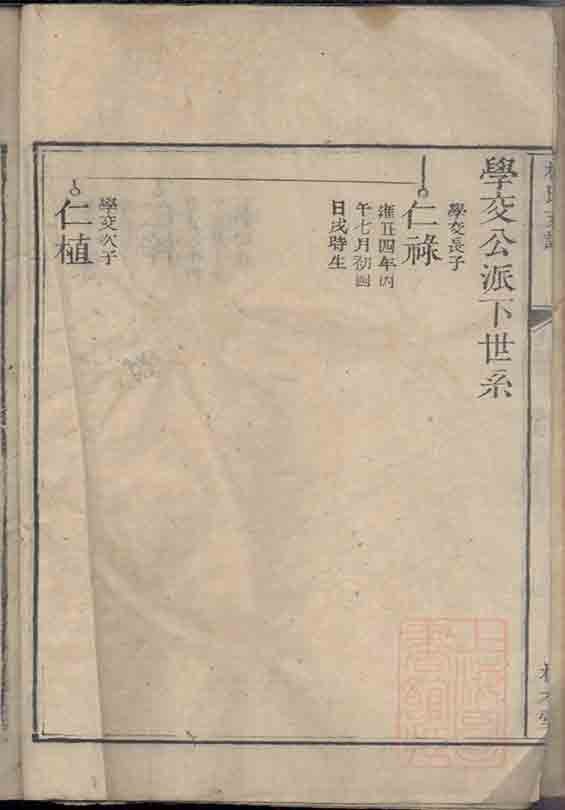 學交公派下世系
學交長子
仁祿
雍正四年丙
午七月初四
日戌時生
學交次子
仁植